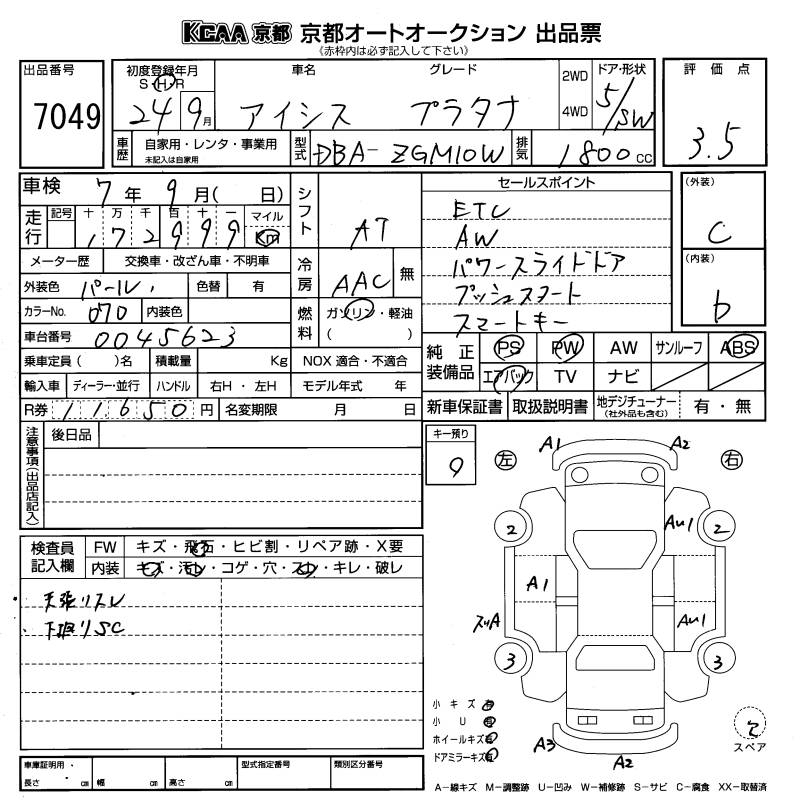 KCAA 京都 京都オートオークション 出品票
《赤枠内は必ず記入して下さい》
出品番号 7049
初度登録年月 S・H・R 24 9月
車名 アイシス
グレード プラタナ
2WD 4WD
ドア・形状 5/SW
評価点 3.5
車歴 自家用・レンタ・事業用 未記入は自家用
型式 DBA-ZGM10W
排気 1800 cc
車検 7年 9月( 日)
シフト AT
セールスポイント
ETC
AW
パワースライドドア
プッシュスタート
スマートキー
(外装) C
(内装) b
走行 記号 十 万 千 百 十 一 マイル Km
172999
メーター歴 交換車・改ざん車・不明車
冷房 AAC 無
外装色 パール 色替 有
カラーNo. 070 内装色
燃料 ガソリン・軽油 ( )
車台番号 0045623
純正装備品 PS PW AW サンルーフ ABS
エアバック TV ナビ
乗車定員 ( )名 積載量 Kg NOX 適合・不適合
輸入車 ディーラー・並行 ハンドル 右H・左H モデル年式 年
新車保証書 取扱説明書 地デジチューナー (社外品も含む) 有・無
R券 11650円 名変期限 月 日
注意事項(出品店記入) 後日品
キー預り 9
左 右
A1 A2
2 2
AU1
A1
スリA AU1
3 3
A3 A2
検査員記入欄
FW キズ・飛石・ヒビ割・リペア跡・X要
内装 キズ・汚レ・コゲ・穴・スレ・キレ・破レ
天張リスレ
下廻りSC
小キズ 有
小U 有
ホイールキズ 有
ドアミラーキズ 有
スペア
車庫証明用・ 長さ cm 幅 cm 高さ cm
型式指定番号
類別区分番号
A－線キズ M－調整跡 U－凹み W－補修跡 S－サビ C－腐食 XX－取替済